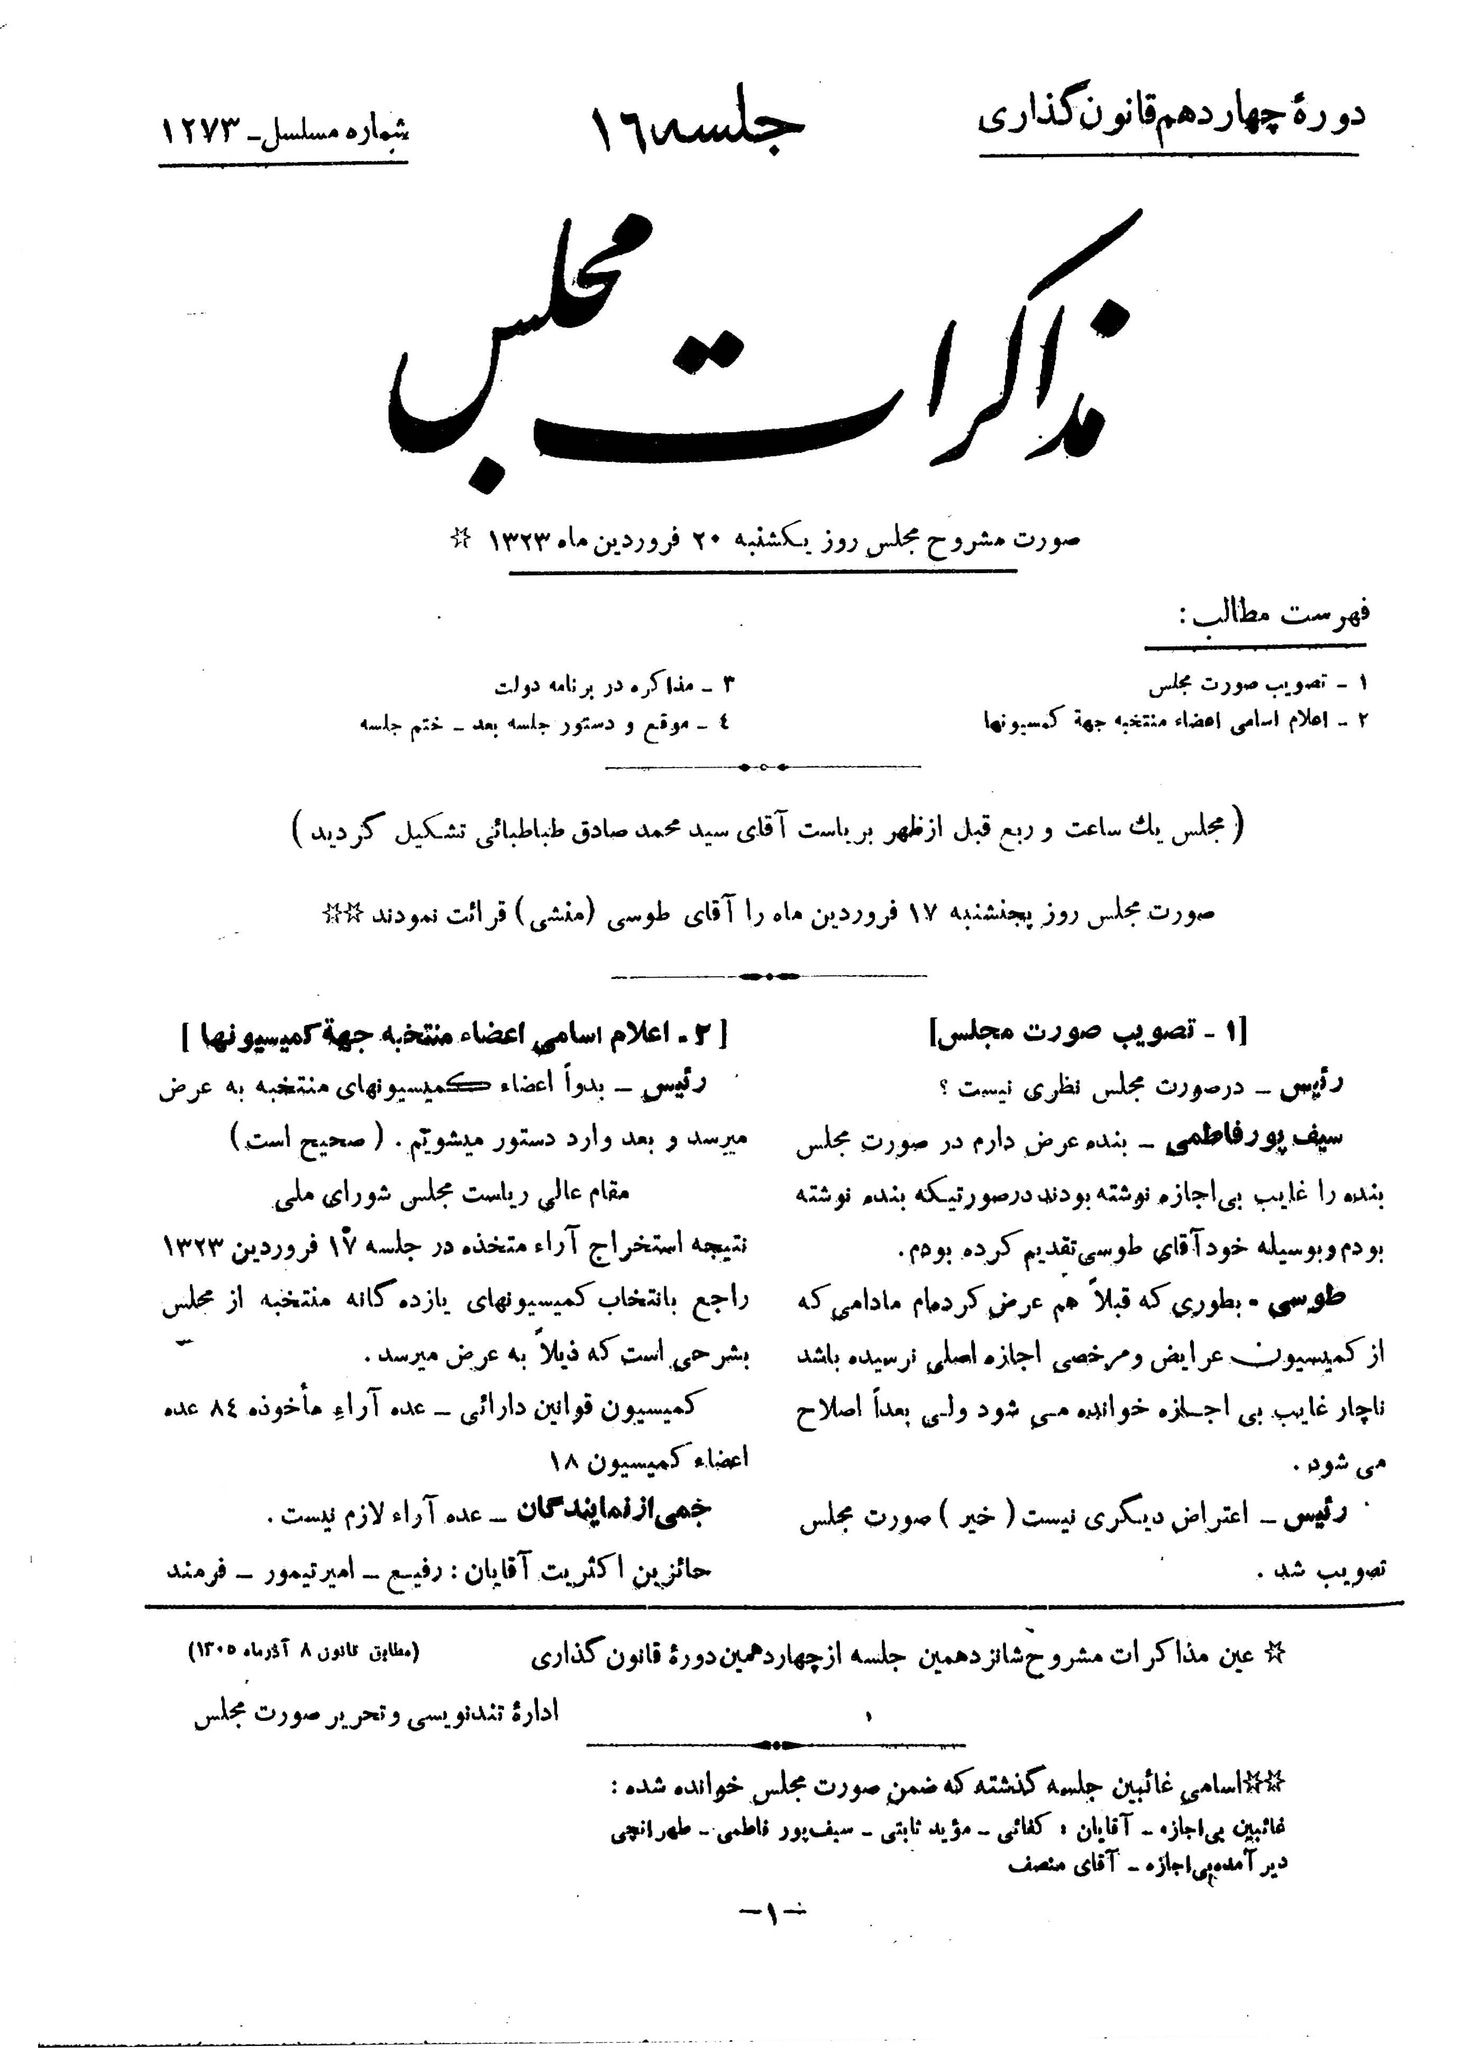 دورهٔ چهاردهم قانون گذاری
جلسه ١٦
شماره مسلسل ـ ١٢٧٣
مذاکرات مجلس
صورت مشروح مجلس روز یکشنبه ٢٠ فروردین ماه ١٣٢٣ ☆
فهرست مطالب :
١ ـ تصویب صورت مجلس
٢ ـ اعلام اسامی اعضاء منتخبه جهة کمسیونها
٣ ـ مذاکره در برنامه دولت
٤ ـ موقع و دستور جلسه بعد ـ ختم جلسه
( مجلس یك ساعت و ربع قبل ازظهر بریاست آقای سید محمد صادق طباطبائی تشکیل گردید )
صورت مجلس روز پنجشنبه ١٧ فروردین ماه را آقای طوسی (منشی) قرائت نمودند ☆☆
[١ ـ تصویب صورت مجلس]
رئیس ـ درصورت مجلس نظری نیست ؟
سیف پورفاطمی ـ بنده عرض دارم در صورت مجلس
بنده را غایب بی‌اجازه نوشته بودند درصورتیکه بنده نوشته
بودم وبوسیله خودآقای طوسی تقدیم کرده بودم.
طوسی ـ بطوری که قبلاً هم عرض کرده‌ام مادامی که
از کمیسیون عرایض ومرخصی اجازه اصلی نرسیده باشد
ناچار غایب بی اجازه خوانده می شود ولی بعداً اصلاح
می شود.
رئیس ـ اعتراض دیگری نیست ( خیر ) صورت مجلس
تصویب شد .
[ ٢ ـ اعلام اسامی اعضاء منتخبه جهة کمیسیونها ]
رئیس ـ بدواً اعضاء کمیسیونهای منتخبه به عرض
میرسد و بعد وارد دستور میشویم . ( صحیح است )
مقام عالی ریاست مجلس شورای ملی
نتیجه استخراج آراء متخذه در جلسه ١٧ فروردین ١٣٢٣
راجع بانتخاب کمیسیونهای یازده گانه منتخبه از مجلس
بشرحی است که ذیلاً به عرض میرسد .
کمیسیون قوانین دارائی ـ عده آراء مأخوذه ٨٤ عده
اعضاء کمیسیون ١٨
جمی ازنمایندگان ـ عده آراء لازم نیست .
حائزین اکثریت آقایان : رفیع ـ امیرتیمور ـ فرمند
☆ عین مذاکرات مشروح شانزدهمین جلسه از چهاردهمین دورهٔ قانون گذاری
(مطابق قانون ٨ آذرماه ١٣٠٥)
ادارهٔ تندنویسی و تحریر صورت مجلس
☆☆اسامی غائبین جلسه گذشته که ضمن صورت مجلس خوانده شده :
غائبین بی‌اجازه ـ آقایان : کفائی ـ مؤید ثابتی ـ سیف‌پور فاطمی ـ طهرانچی
دیرآمده‌بی‌اجازه ـ آقای منصف
ـ١ـ